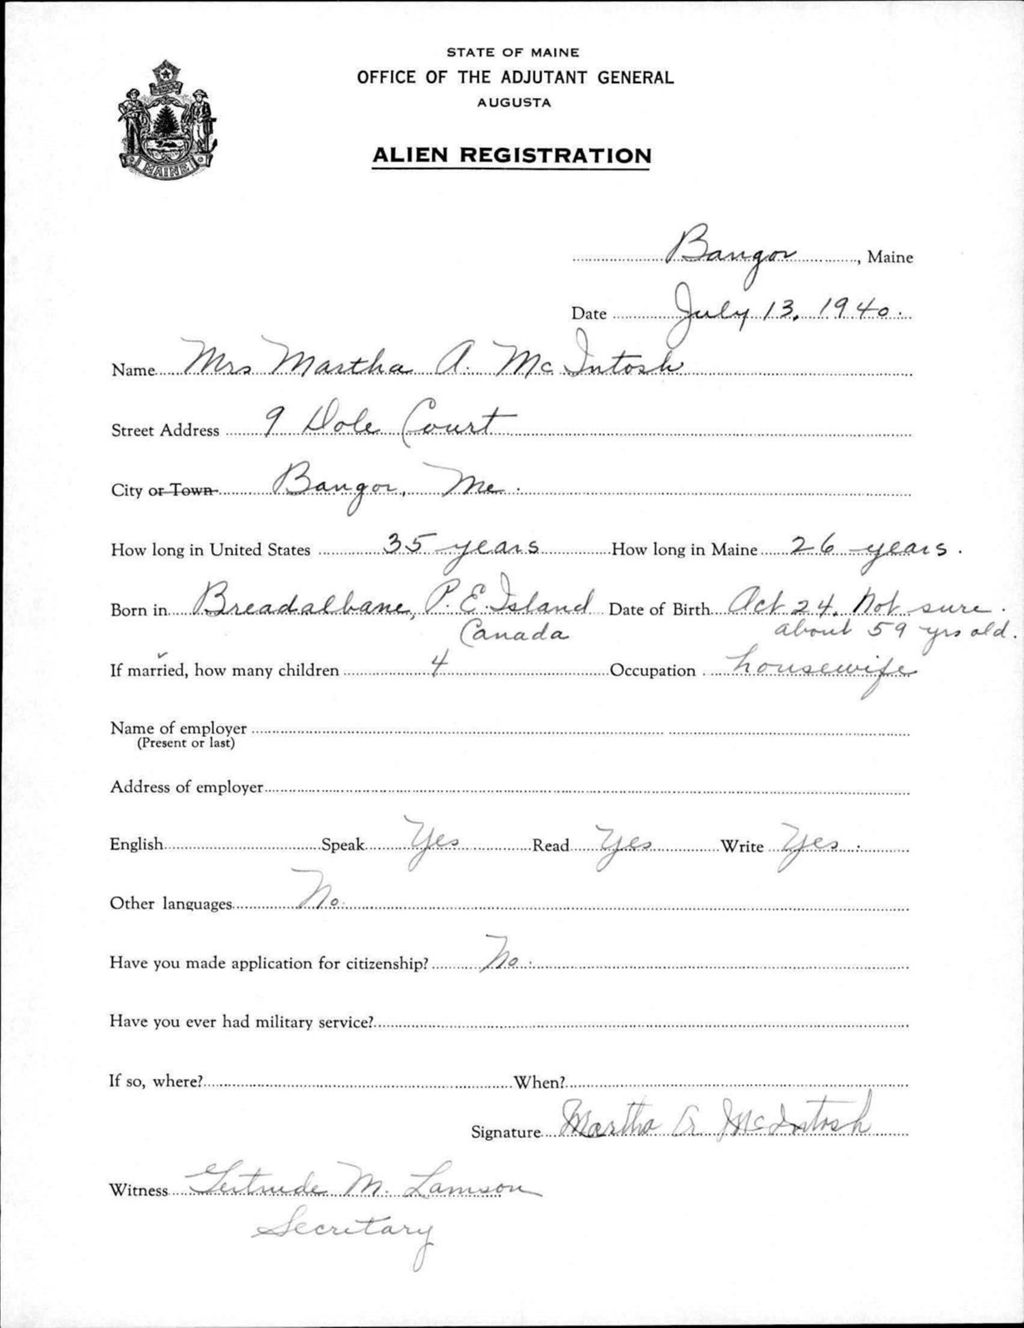 STATE OF MAINE
OFFICE OF THE ADJUTANT GENERAL
AUGUSTA
ALIEN REGISTRATION
MAINE
Bangor, Maine
Date July 13, 1940.
Name Mrs Martha A. McIntosh
Street Address 9 Dole Court
City or Town Bangor, Me.
How long in United States 35 years How long in Maine 26 years.
Born in Breadalbane, P. E. Island Date of Birth Oct 24. Not sure.
Canada about 59 yrs old.
If married, how many children 4 Occupation housewife
Name of employer
(Present or last)
Address of employer
English Speak Yes Read Yes Write Yes.
Other languages No.
Have you made application for citizenship? No.
Have you ever had military service?
If so, where? When?
Signature Martha A McIntosh
Witness Gertrude M. Lamson
Secretary